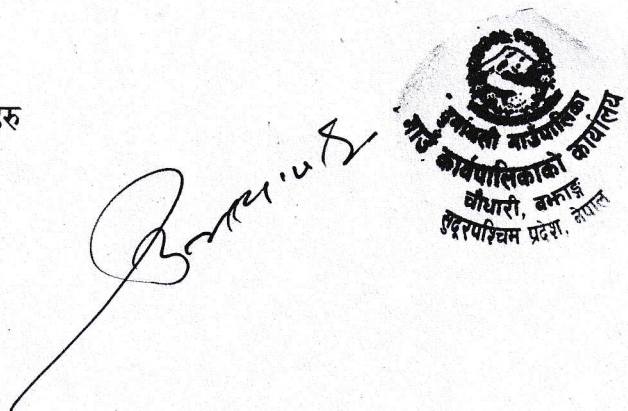 हरु
दुर्गाथली गाउँपालिका
गाउँ कार्यपालिकाको कार्यालय
चौधारी, बझाङ्ग
सुदूरपश्चिम प्रदेश, नेपाल